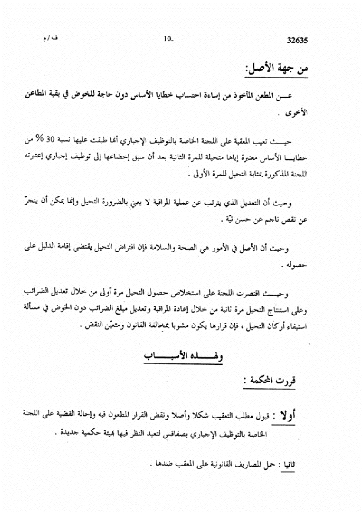 32635
10-
ف / م
من جهة الأصل :
عـــن المطعن المأخوذ من إساءة احتساب خطايا الأساس دون حاجة للخوض في بقية المطاعن
الأخرى .
حيث تعيب المعقبة على اللجنة الخاصة بالتوظيف الإجباري أنها طبقت عليها نسبة 30 % من
خطايا الأساس معتبرة إياها متحيلة للمرة الثانية بعد أن سبق إخضاعها إلى توظيف إجباري إعتبرته
اللجنة المذكورة بمثابة التحيل للمرة الأولى .
وحيث أن التعديل الذي يترتب عن عملية المراقبة لا يعني بالضرورة التحيل وإنما يمكن أن ينجرّ
عن نقص ناجم عن حسن نيّة .
وحيث أن الأصل في الأمور هي الصحة والسلامة فإن افتراض التحيل يقتضي إقامة الدليل على
حصوله .
وحيث اقتصرت اللجنة على استخلاص حصول التحيل مرة أولى من خلال تعديل الضرائب
وعلى استنتاج التحيل مرة ثانية من خلال إعادة المراقبة وتعديل مبلغ الضرائب دون الخوض في مسألة
استيفاء أركان التحيل ، فإن قرارها يكون مشوبا بمخالفة القانون ومتعيّن النقض .
ولهـذه الأسبـاب
قررت المحكمة :
أولا : قبول مطلب التعقيب شكلا وأصلا ونقض القرار المطعون فيه وإحالة القضية على اللجنة
الخاصة بالتوظيف الإجباري بصفاقس لتعيد النظر فيها بهيئة حكمية جديدة .
ثانيا : حمل المصاريف القانونية على المعقب ضدها .